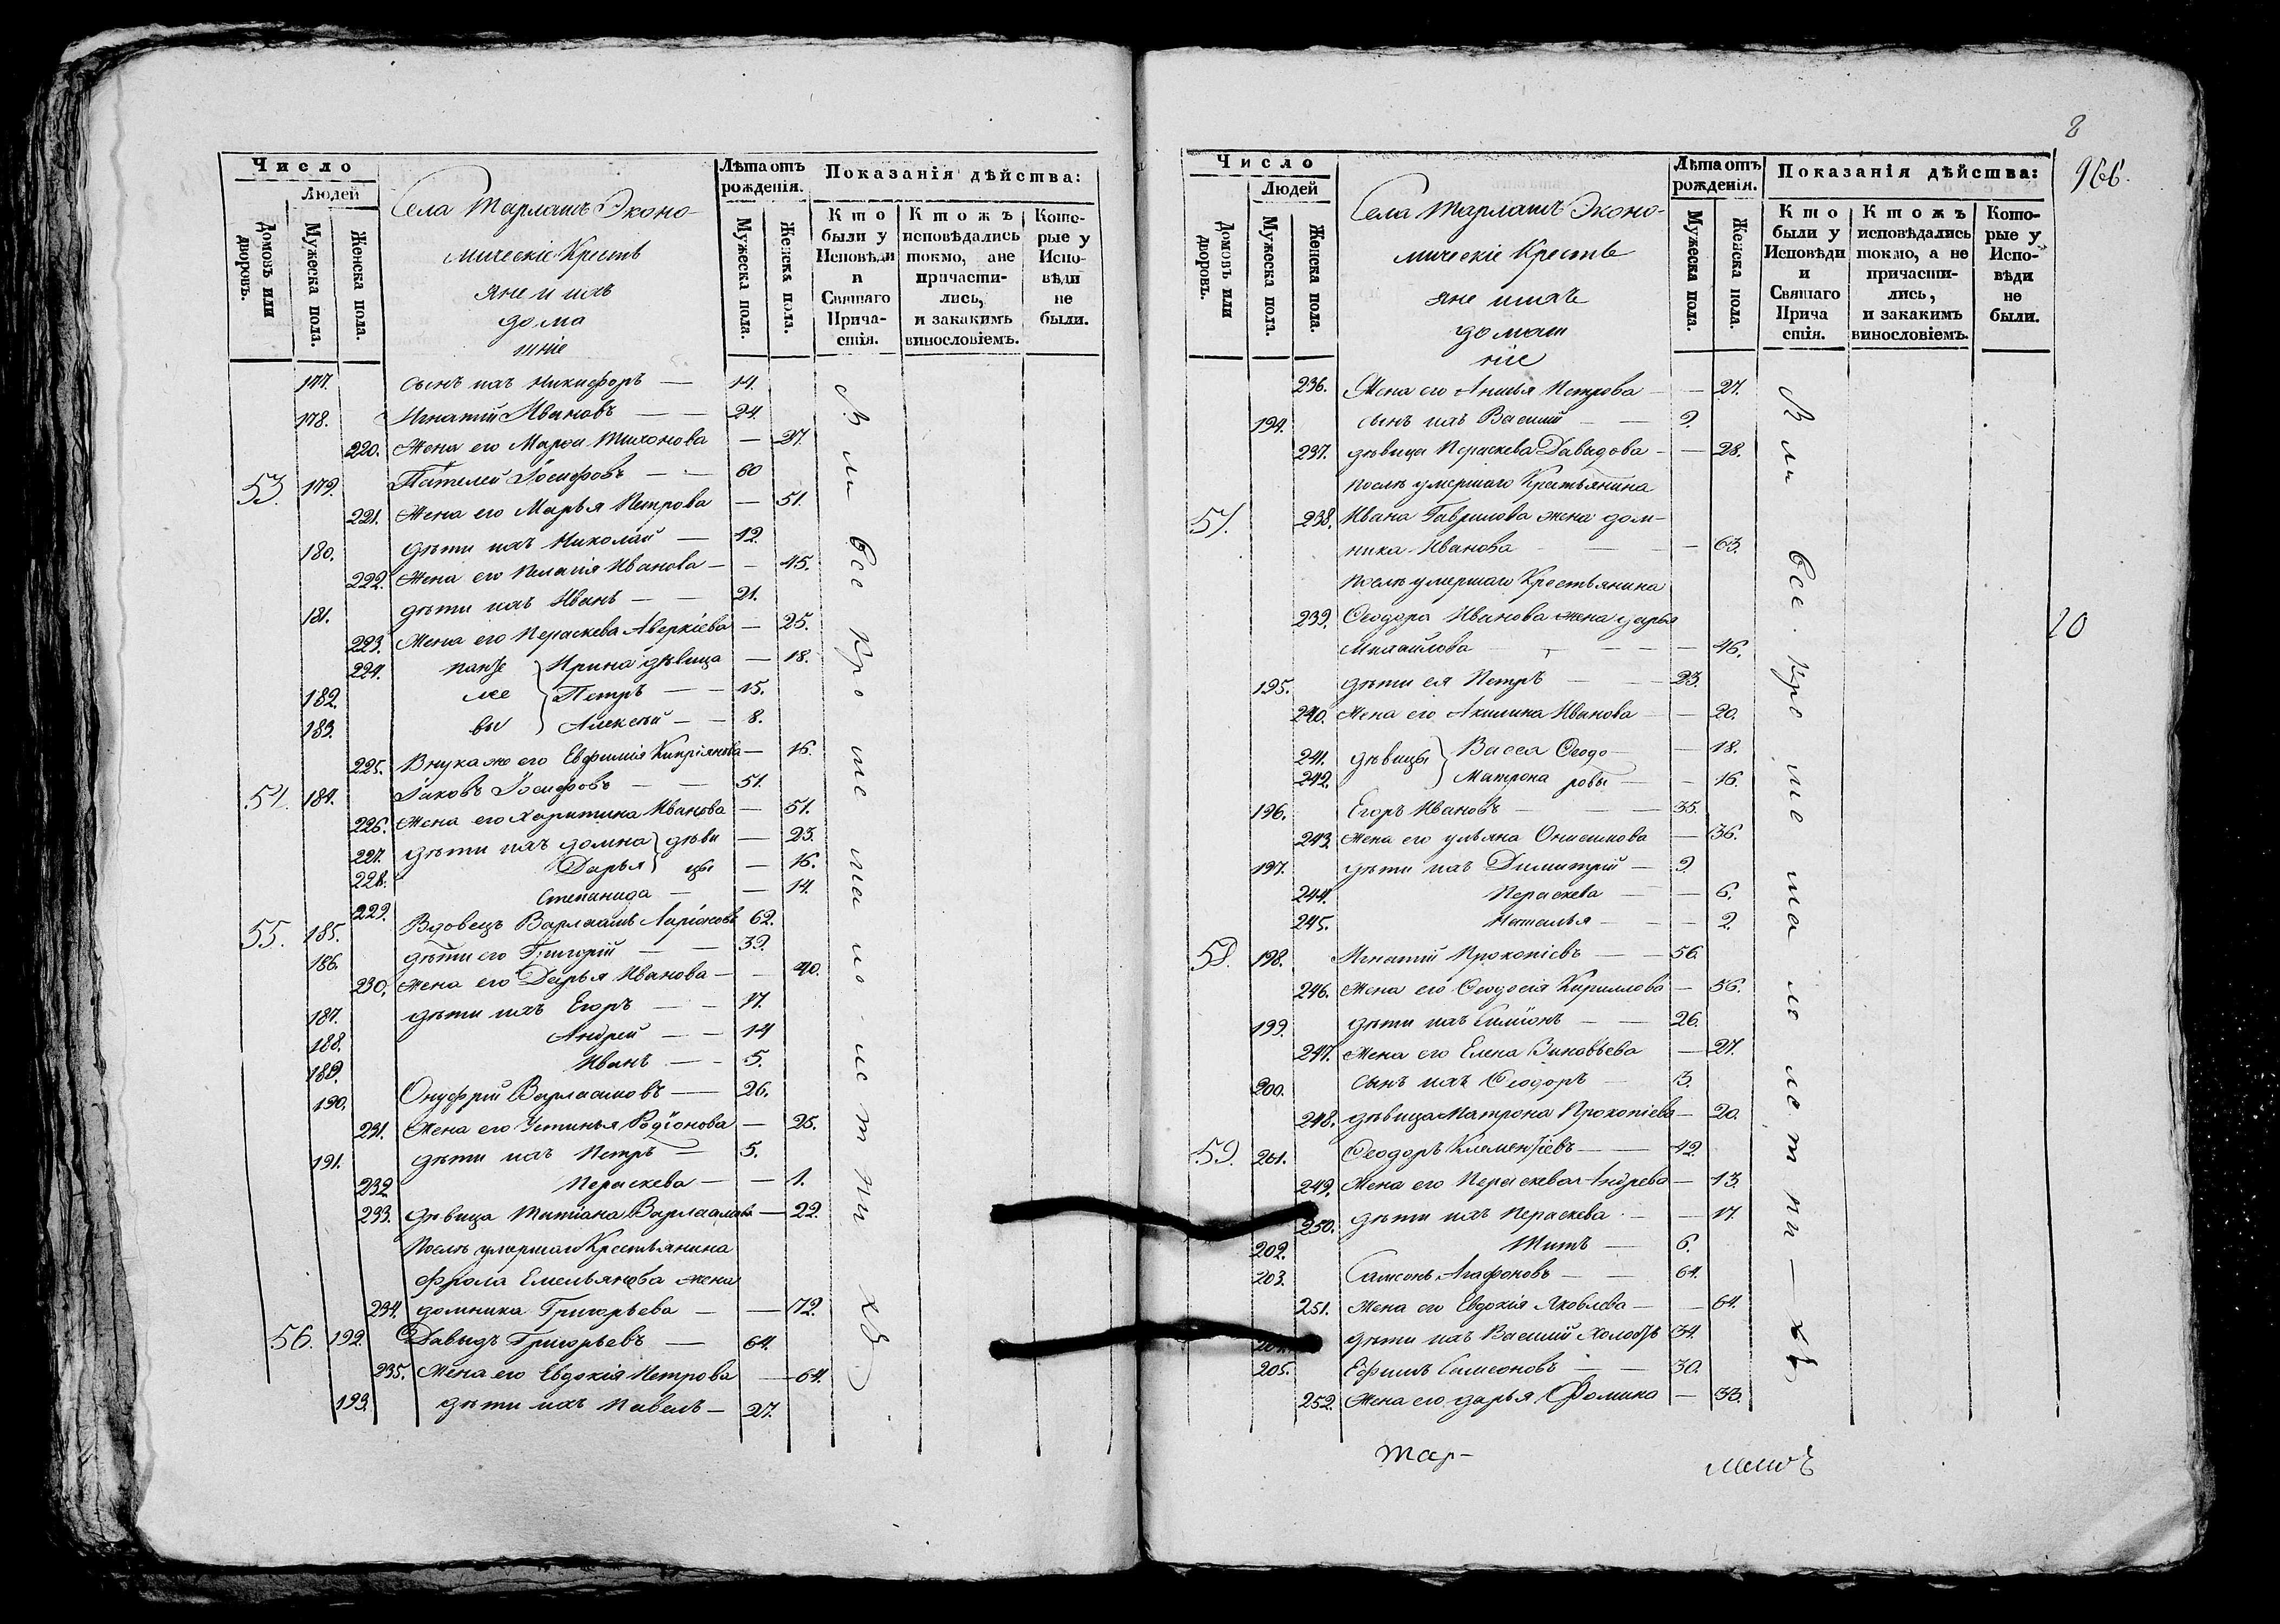 Число
Людей
Домовъ или дворовъ.
Мужеска пола.
Женска пола.
Села Тарлашъ Эконо-
мическіе Кресть
яне и ихъ
дома
шніе
Лѣта отъ рожденія.
Мужеска пола.
Женска пола.
Показанія дѣйства:
Кто были у Исповѣди и Святаго Прича-стія.
Ктожъ исповѣдались токмо, а не причасти-лись, и закакимъ винословіемъ.
Кото-рые у Испо-вѣди не были.
177. сынъ ихъ Никифоръ — 14.
178. Игнатій Ивановъ — — 24.
220. Жена его Марѳа Тихонова — 27.
53. 179. Пателей Іосифовъ — — 60
221. Жена его Марья Петрова — 51.
180. дѣти ихъ Николай — 12.
222. Жена его Пелагія Иванова — — 45.
181. дѣти ихъ Иванъ — — 21.
223. Жена его Пераскева Аверкіева — 25.
224. Ирина дѣвица — 18.
182. Петръ — — 15.
183. Алексѣй — — 8.
225. Внука же его Евфимія Кипріянова — 16.
54. 184. Іаковъ Іосифовъ — — 51.
226. Жена его Харитина Иванова — 51.
227. дѣти ихъ домна } дѣви — 23.
228. Дарья } цы — 16.
229. Степанида — — 14.
55. 185. Вдовецъ Варлаамъ Ларіоновъ 62.
186. дѣти его Григорій — — 39.
230. Жена его Дарья Иванова — — 40.
187. дѣти ихъ Егоръ — — 17.
188. Андрей — — 14
189. Иванъ — — 5.
190. Онуфрій Варлаамовъ — 26.
231. Жена его Устинья Родіонова — 25.
191. дѣти ихъ Петръ — 5.
232 Пераскева — — 1.
233. дѣвица Татіана Варлаамова — 22.
Послѣ умершаго Крестьянина
Фрола Емельянова жена
234. домника Григорьева — — 72.
56. 192. Давыдъ Григорьевъ — 64.
235. Жена его Евдокія Петрова — 64.
193. дѣти ихъ Павелъ — 27.
всѣ кроме мало летнихъ
8
966.
Число
Людей
Домовъ или дворовъ.
Мужеска пола.
Женска пола.
Села Тарлашъ Эконо-
мическіе Кресть
яне ихъ
домаш
ніе
Лѣта отъ рожденія.
Мужеска пола.
Женска пола.
Показанія дѣйства:
Кто были у Исповѣди и Святаго Прича стія.
Ктожъ исповѣдались токмо, а не причасти-лись, и закакимъ винословіемъ.
Кото-рые у Испо-вѣди не были.
236. Жена его Анисья Петрова — — 27.
194. сынъ ихъ Василій — — 9.
237. дѣвица Пераскева Давидова — — 28.
Послѣ умершаго Крестьянина
57. 238. Ивана Гаврилова жена дом-
ника Иванова — — 63.
Послѣ умершаго Крестьянина
239. Ѳеодора Иванова жена дарья
Михайлова — — — 46.
20
195. дѣти ея Петръ — — 23.
240. Жена его Акилина Иванова — — 20.
241. дѣвицы } Васса Ѳеодо — — 18.
242. Матрона ровы — — 16.
196. Егоръ Ивановъ — — 35.
243. Жена его ульяна Онисимова — 36.
197. дѣти ихъ Димитрій — 9
244. Пераскева — — 6.
245. Наталья — — 2.
58. 198. Игнатій Прокопіевъ — — 56.
246. Жена его Ѳеодосія Кирилова — 56.
199. дѣти ихъ Симіонъ — — 26.
247. Жена его Елена Зиновьева — 27.
200. сынъ ихъ Ѳеодоръ — 3.
248. дѣвица Матрона Прокопіева — 20.
59. 201. Ѳеодоръ Клементіевъ — — 42
249. Жена его Пераскева Андрева — 13
250. дѣти ихъ Пераскева — — 17.
202. Титъ — 6.
203. Самсонъ Агафоновъ — — 64.
251. Жена его Евдокія Яковлева — — 64.
204. дѣти ихъ Василій холостъ 34.
205. Ефимъ Самсоновъ — — 30.
252. Жена его дарья Фомина — 33.
всѣ кроме мало летни — хъ
Тар-